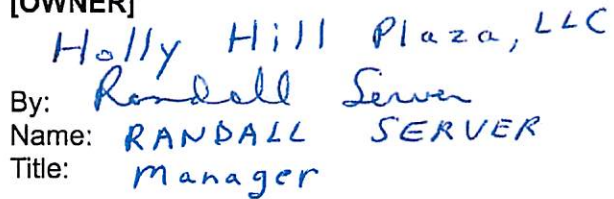 [OWNER]
Holly Hill Plaza, LLC
By: Randall Server
Name: RANDALL SERVER
Title: Manager